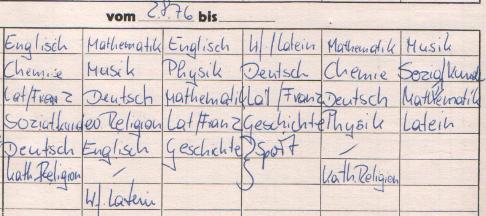 vom 2.8.76 bis
Englisch Mathematik Englisch W/Latein Mathematik Musik
Chemie Musik Physik Deutsch Chemie Sozialkunde
Lat/Franz Deutsch Mathematik Lat/Franz Deutsch Mathematik
Sozialkunde ev Religion Lat/Franz Geschichte Physik Latein
Deutsch Englisch Geschichte Sport /
kath.Religion / kath Religion
W/.Latein